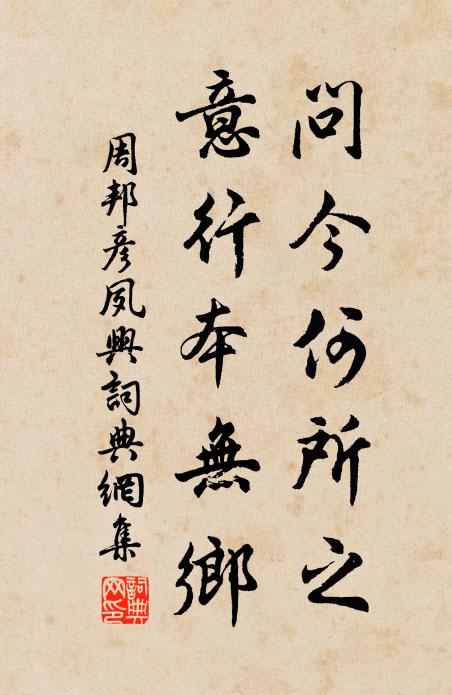 問今何所之
意行本無鄉
周邦彥夙興詞典網集
詞典網印